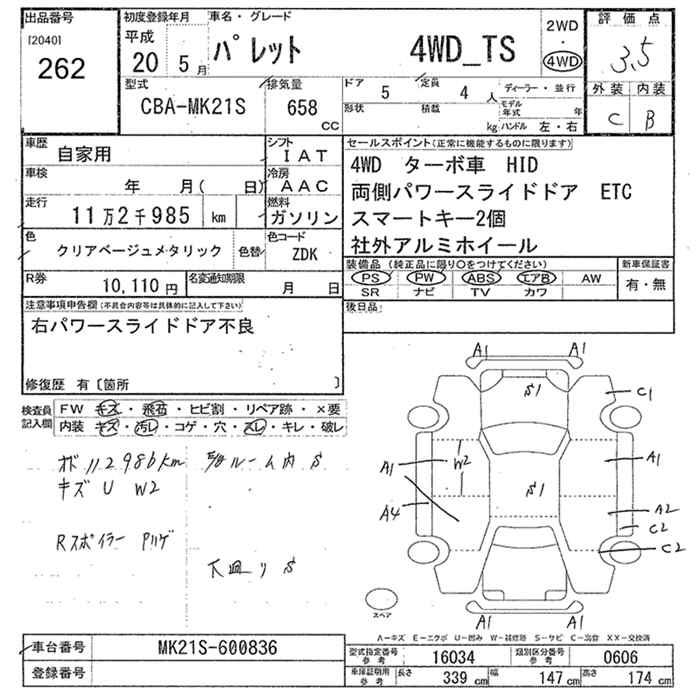 出品番号
[2040]
262
初度登録年月
平成
20 5 月
車名・グレード
パレット 4WD_TS
2WD
・
4WD
評価点
3.5
外装 内装
C B
型式
CBA-MK21S
排気量
658
CC
ドア
5
定員
4 人
形状
積載
kg
ディーラー・並行
モデル年式 年
ハンドル 左・右
車歴
自家用
シフト
IAT
車検
年 月( 日)
冷房
AAC
走行
11万2千985 km
燃料
ガソリン
色
クリアベージュメタリック
色替
色コード
ZDK
R券
10,110 円
名変通知期限
月 日
セールスポイント(正常に機能するものに限ります)
4WD ターボ車 HID
両側パワースライドドア ETC
スマートキー2個
社外アルミホイール
装備品 (純正品に限り○をつけてください)
PS PW ABS エアB AW
SR ナビ TV カワ
新車保証書
有・無
後日品
注意事項申告欄(不具合内容等は具体的に記入して下さい)
右パワースライドドア不良
修復歴 有〔箇所 〕
検査員記入欄
FW キズ・飛石・ヒビ割・リペア跡・×要
内装 キズ・汚レ・コゲ・穴・スレ・キレ・破レ
112986km
ルーム内 S
キズ U W2
Rスポイラー
下廻り S
A1 A1
S1
C1
A1
W2
A1
S1
A4
A2
C2
C2
スペア
A1 A1
A-キズ E-エクボ U-凹み W-補修跡 S-サビ C-腐食 XX-交換済
車台番号
MK21S-600836
登録番号
型式指定番号
参考
16034
類別区分番号
参考
0606
車庫証明用
参考
長さ
339 cm
幅
147 cm
高さ
174 cm